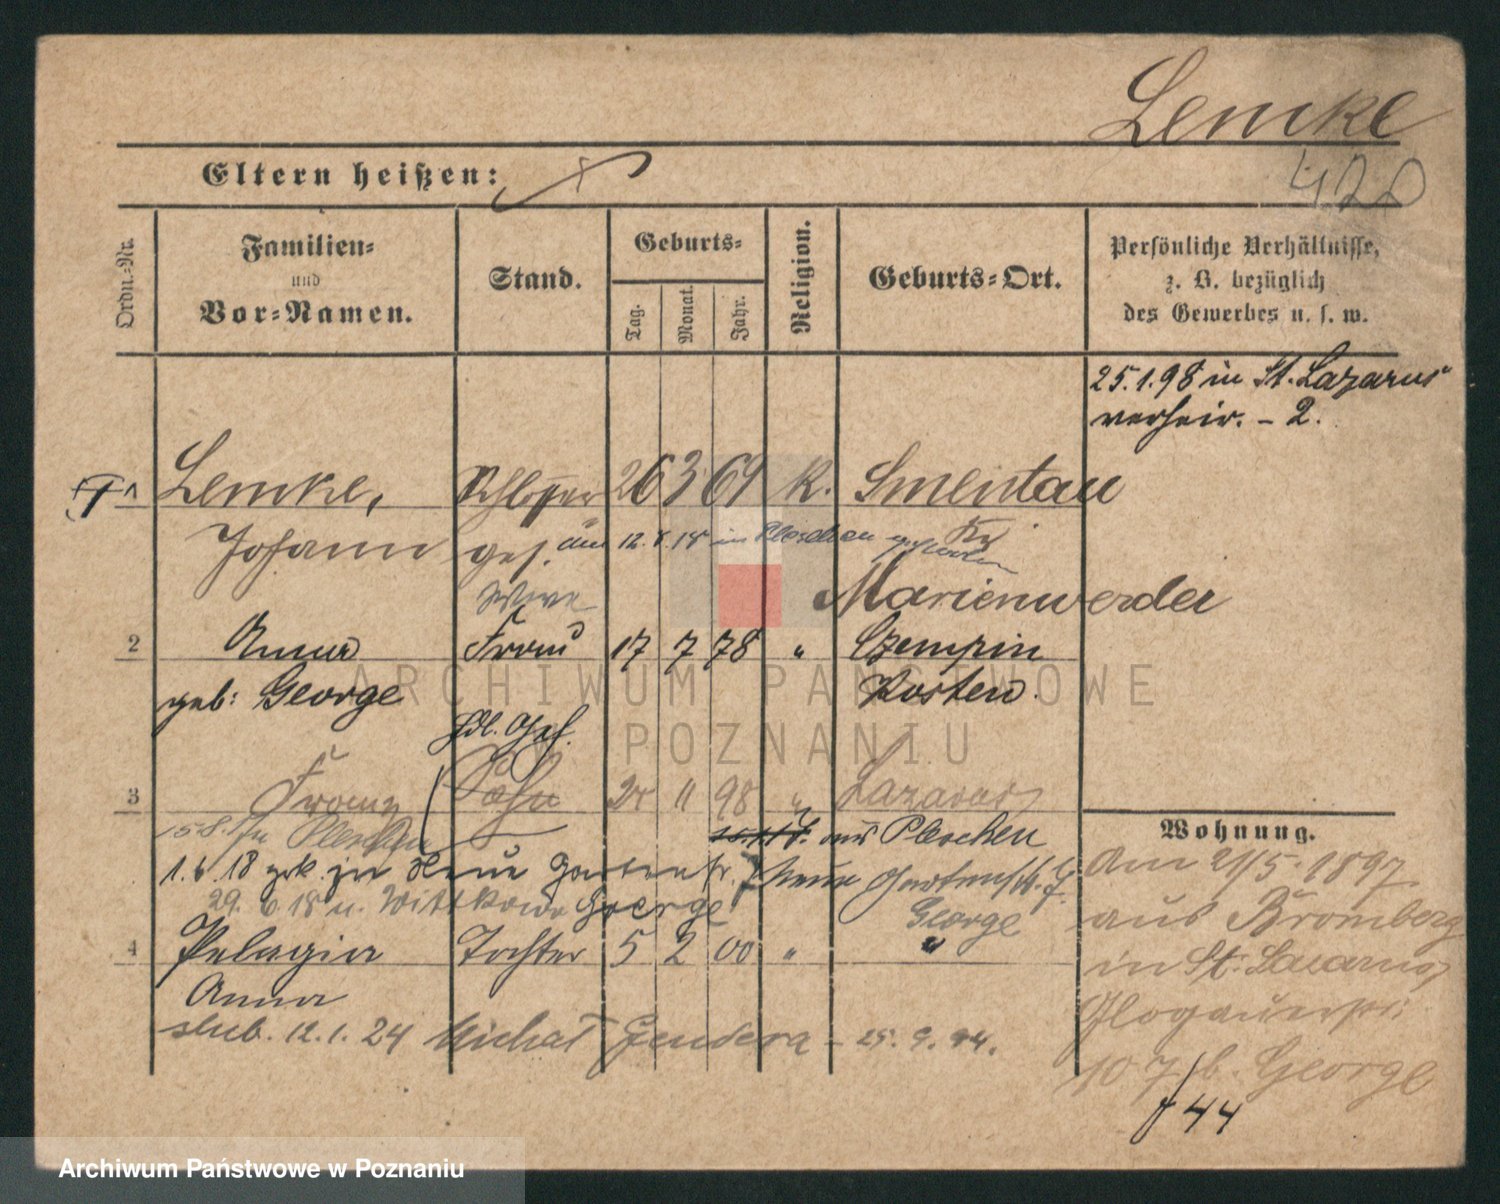 Lemke
420
Eltern heißen:
Ordn.-Nr.
Familien- und Vor-Namen.
Stand.
Geburts-
Tag.
Monat.
Jahr.
Religion.
Geburts-Ort.
Persönliche Verhältnisse, z. B. bezüglich des Gewerbes u. s. w.
25.1.98 in St. Lazarus
verheir. - 2.
1 Lemke, Schlosser 26 3 69 K. Smentau
Johann ges. am 12. 18 in Pleschen
Marienwerder
2 Anna Frau 17 7 78 " Czempin
geb: George Kosten
3 Franz Sohn 24 11 98 " Lazarus
aus Pleschen
1.6.18 zrk. zu Neue Gartenstr.
Neue Gartenstr.
29. 6 18 u. Wittkowo George
George
4 Pelagia Tochter 5 2 00 " "
Anna
slub. 12.1.24 Michał Gendera - 25.9.94.
Wohnung.
Am 21/5. 1897
aus Bromberg
in St. Lazarus,
107 b. George
44
ARCHIWUM PAŃSTWOWE
W POZNANIU
Archiwum Państwowe w Poznaniu